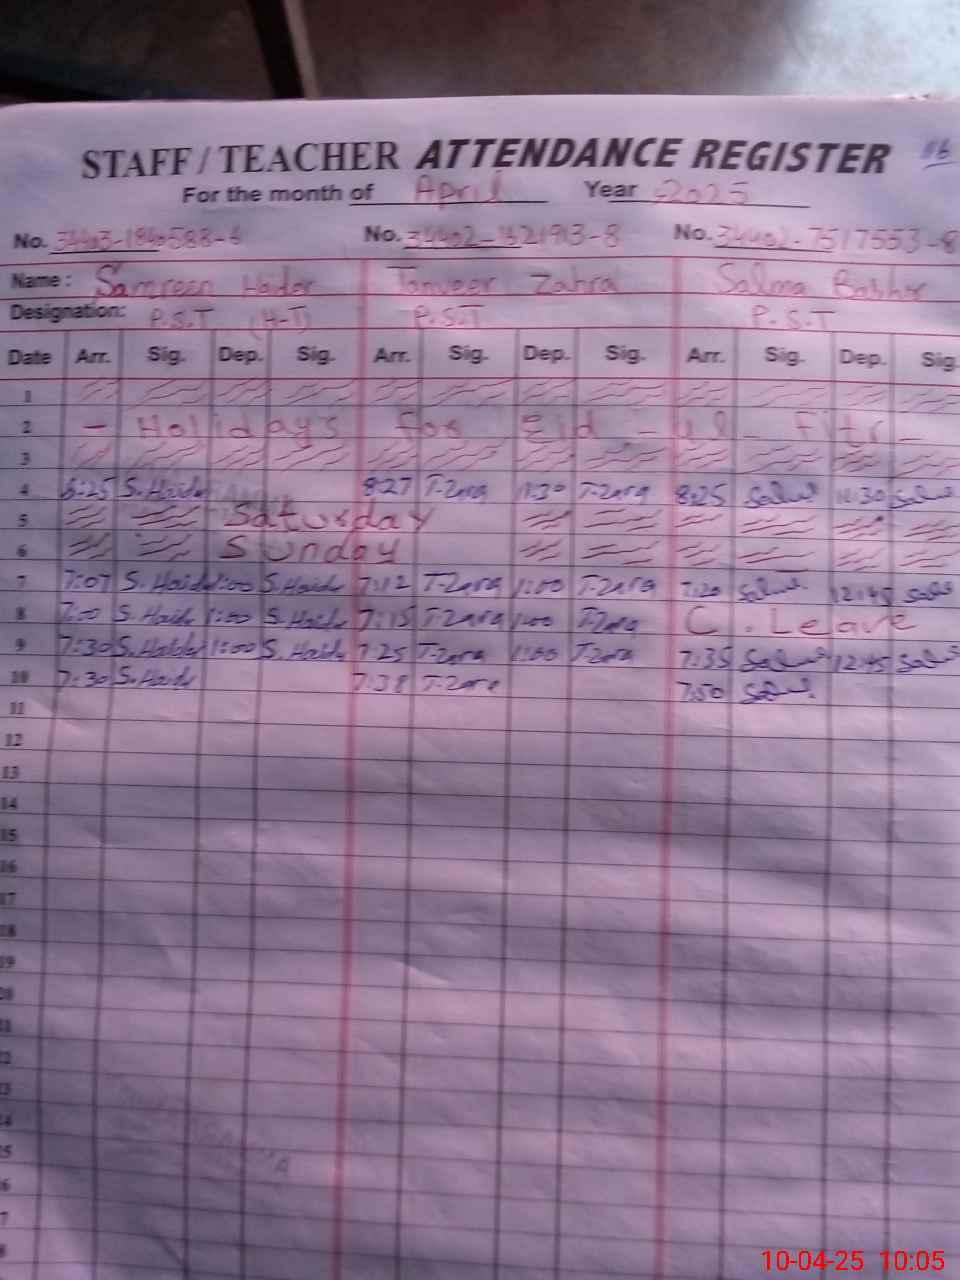 STAFF / TEACHER ATTENDANCE REGISTER 116
For the month of April Year 2025
No. No. No. 34402-7517553-8
Name: Samreen Haider Tanveer Zahra Salma Bashir
Designation: P.S.T (H-T) P.S.T P.S.T
Date Arr. Sig. Dep. Sig. Arr. Sig. Dep. Sig. Arr. Sig. Dep. Sig.
1
2 - Holidays for Eid - ul - Fitr -
3
4 8:25 S.Haider 8:27 T-Zara 11:30 T-Zara 8:25 Salma 11:30 Salma
5 Saturday
6 Sunday
7 7:07 S.Haider 1:00 S.Haider 7:12 T-Zara 1:00 T-Zara 7:20 Salma 12:45 Salma
8 7:00 S.Haider 1:00 S.Haider 7:15 T-Zara 1:00 T-Zara C. Leave
9 7:30 S.Haider 1:00 S.Haider 7:25 T-Zara 1:00 T-Zara 7:35 Salma 12:45 Salma
10 7:30 S.Haider 7:38 T-Zara 7:50 Salma
11
12
13
14
15
16
17
18
19
20
21
22
23
24
25
26
27
28
10-04-25 10:05